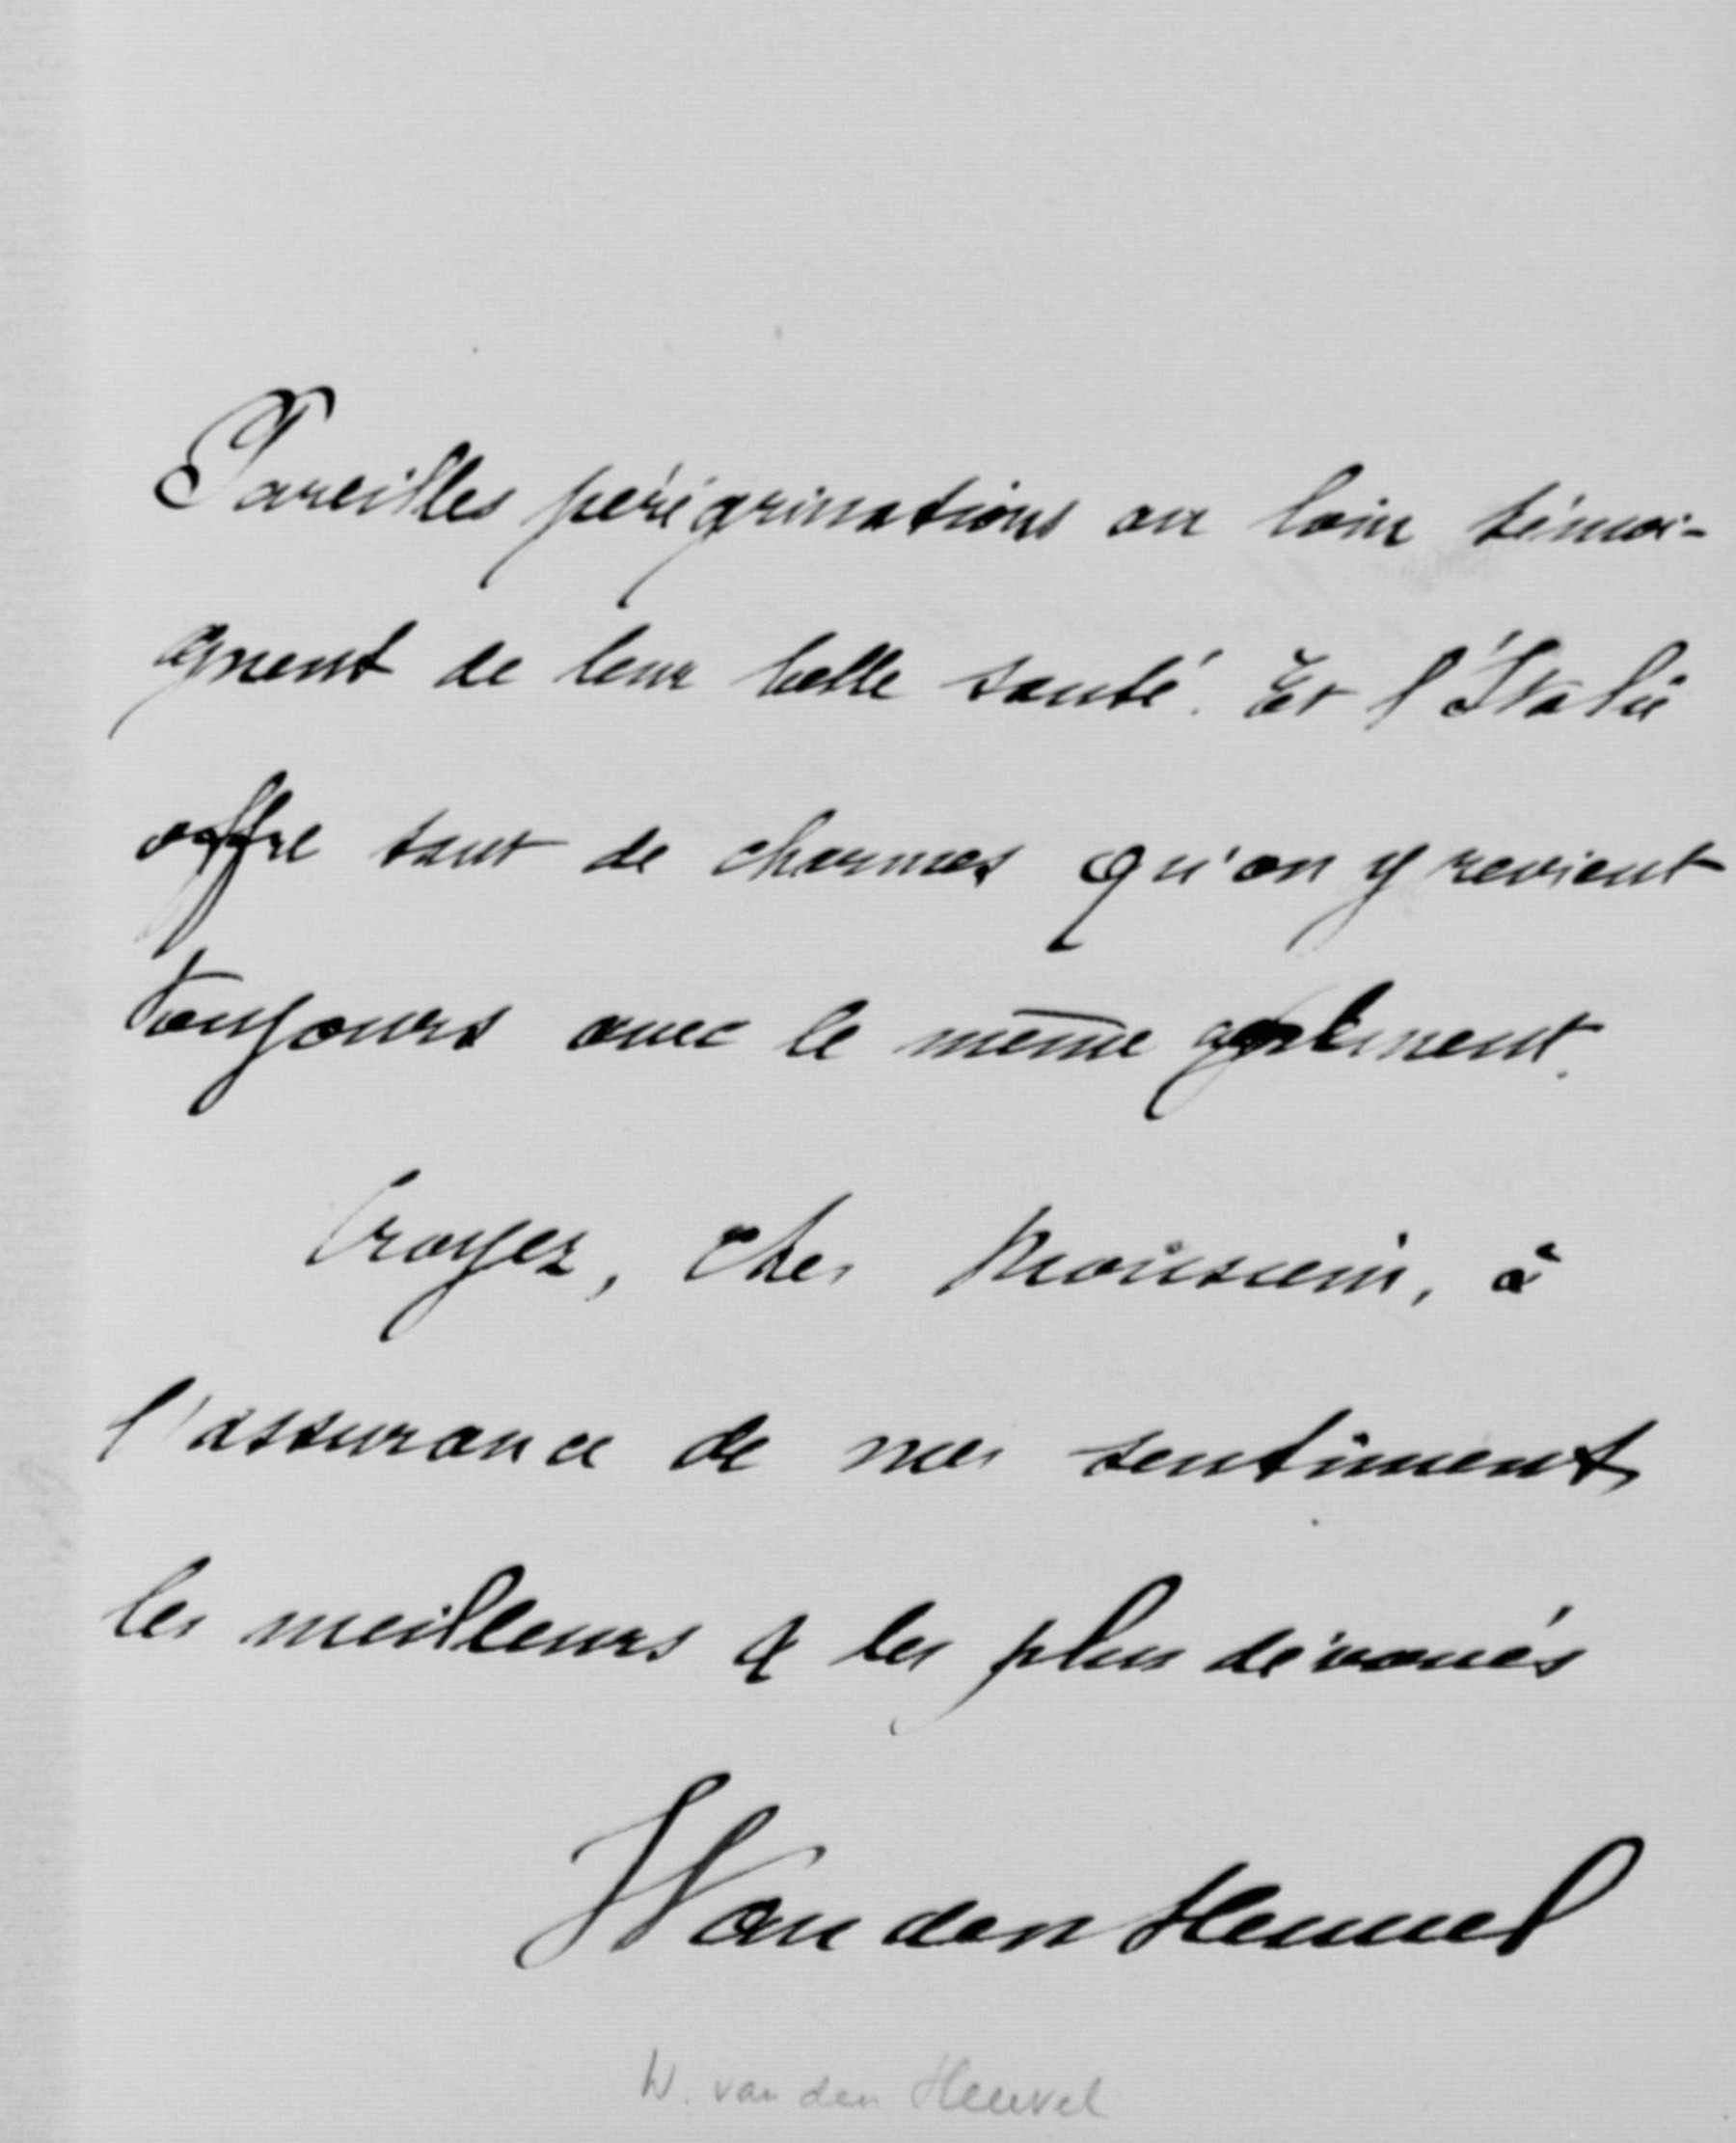 Pareilles pérégrinations au loin témoi-
gnent de leur belle santé. Et l'Italie
offre tant de charmes qu'on y revient
toujours avec le même agrément.
Croyez, cher Monsieur, à
l'assurance de mes sentiments
les meilleurs & les plus dévoués
Van den Heuvel
W. van den Heuvel